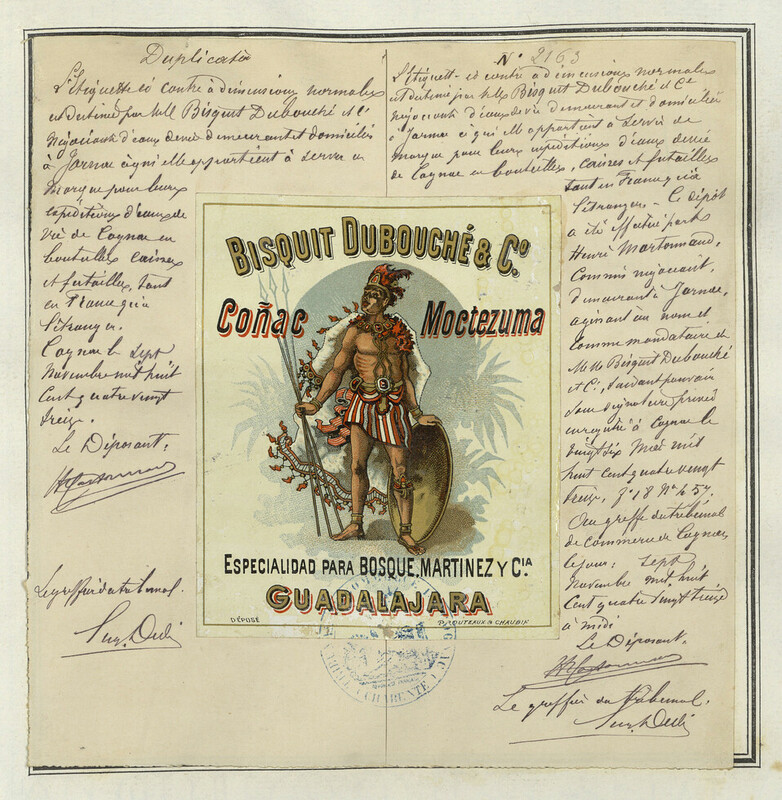 Duplicata
L'étiquette ci contre à dimensions normales
est destinée par MM Bisquit Dubouché et Cie
négociants d'eaux de vie demeurant et domiciliés
à Jarnac à qui elle appartient à servir de
marque pour leurs
expéditions d'eaux de
vie de Cognac en
bouteilles caisses
et futailles, tant
en France qu'à
l'étranger.
Cognac le sept
Novembre mil huit
cent quatre vingt
treize.
Le Déposant:
Le greffier du tribunal.
N° 2163
L'étiquette ci contre à dimensions normales
est destinée par MM Bisquit Dubouché et Cie
négociants d'eaux de vie demeurant et domiciliés
à Jarnac à qui elle appartient à servir de
marque pour leurs expéditions d'eaux de vie
de Cognac en bouteilles, caisses et futailles
tant en France qu'à
l'étranger - Ce dépôt
a été effectué par M
Henri
Commis négociant,
demeurant à Jarnac,
agissant au nom et
comme mandataire de
MM Bisquit Dubouché
et Cie, suivant pouvoir
sous signature privée
enregistré à Cognac le
vingt six Mai mil
huit cent quatre vingt
treize, f° 18 N°
Au greffe du tribunal
de commerce de Cognac
le jour: sept
Novembre mil huit
cent quatre vingt treize
à midi
Le Déposant.
Le greffier du tribunal.
BISQUIT DUBOUCHÉ & Co.
Coñac Moctezuma
ESPECIALIDAD PARA BOSQUE, MARTINEZ Y CIA
GUADALAJARA
DÉPOSÉ
CHARENTE